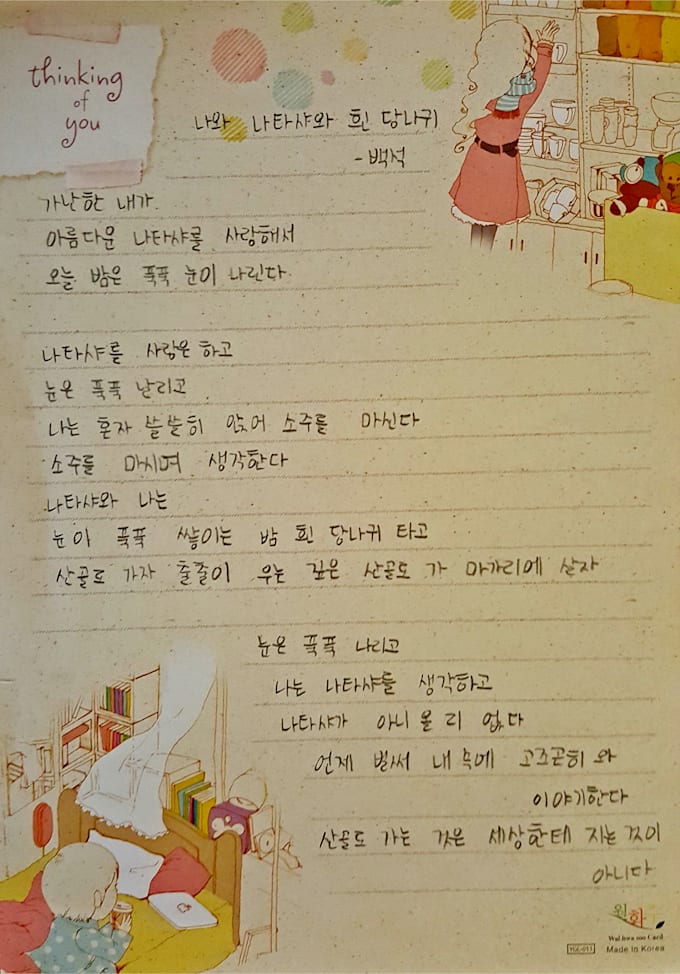 thinking
of
you
나와 나타샤와 흰 당나귀
- 백석
가난한 내가
아름다운 나타샤를 사랑해서
오늘 밤은 푹푹 눈이 나린다.
나타샤를 사랑은 하고
눈은 푹푹 날리고
나는 혼자 쓸쓸히 앉어 소주를 마신다
소주를 마시며 생각한다
나타샤와 나는
눈이 푹푹 쌓이는 밤 흰 당나귀 타고
산골로 가자 출출이 우는 깊은 산골로 가 마가리에 살자
눈은 푹푹 나리고
나는 나타샤를 생각하고
나타샤가 아니 올 리 없다
언제 벌써 내 속에 고조곤히 와
이야기한다
산골로 가는 것은 세상한테 지는 것이
아니다
원화
Wal hwa soo Card
YGL-013 Made In Korea